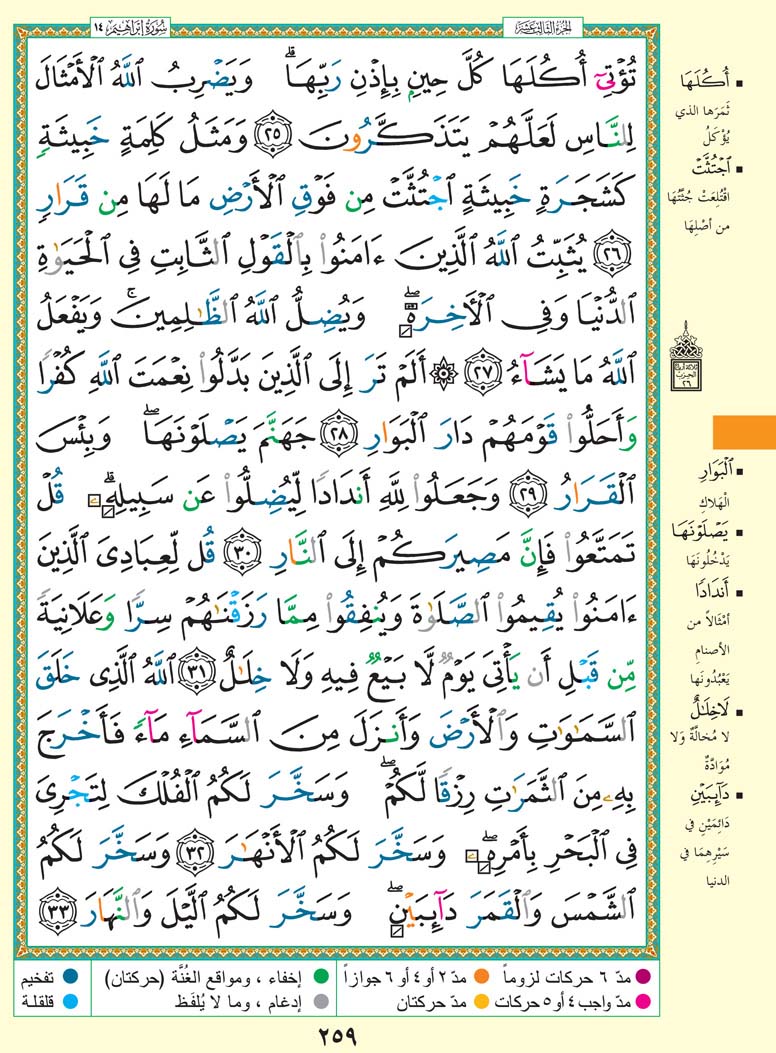 سُورَةُ إِبْرَاهِيم ١٤
الجُزءُ الثَّالِثَ عَشَرَ
تُؤْتِىٓ أُكُلَهَا كُلَّ حِينٍۭ بِإِذْنِ رَبِّهَا ۗ وَيَضْرِبُ ٱللَّهُ ٱلْأَمْثَالَ
لِلنَّاسِ لَعَلَّهُمْ يَتَذَكَّرُونَ ٢٥ وَمَثَلُ كَلِمَةٍ خَبِيثَةٍ
كَشَجَرَةٍ خَبِيثَةٍ ٱجْتُثَّتْ مِن فَوْقِ ٱلْأَرْضِ مَا لَهَا مِن قَرَارٍ
٢٦ يُثَبِّتُ ٱللَّهُ ٱلَّذِينَ ءَامَنُوا۟ بِٱلْقَوْلِ ٱلثَّابِتِ فِى ٱلْحَيَوٰةِ
ٱلدُّنْيَا وَفِى ٱلْءَاخِرَةِ ۖ وَيُضِلُّ ٱللَّهُ ٱلظَّٰلِمِينَ ۚ وَيَفْعَلُ
ٱللَّهُ مَا يَشَآءُ ٢٧ ۞ أَلَمْ تَرَ إِلَى ٱلَّذِينَ بَدَّلُوا۟ نِعْمَتَ ٱللَّهِ كُفْرًا
وَأَحَلُّوا۟ قَوْمَهُمْ دَارَ ٱلْبَوَارِ ٢٨ جَهَنَّمَ يَصْلَوْنَهَا ۖ وَبِئْسَ
ٱلْقَرَارُ ٢٩ وَجَعَلُوا۟ لِلَّهِ أَندَادًا لِّيُضِلُّوا۟ عَن سَبِيلِهِۦ ۗ قُلْ
تَمَتَّعُوا۟ فَإِنَّ مَصِيرَكُمْ إِلَى ٱلنَّارِ ٣٠ قُل لِّعِبَادِىَ ٱلَّذِينَ
ءَامَنُوا۟ يُقِيمُوا۟ ٱلصَّلَوٰةَ وَيُنفِقُوا۟ مِمَّا رَزَقْنَٰهُمْ سِرًّا وَعَلَانِيَةً
مِّن قَبْلِ أَن يَأْتِىَ يَوْمٌ لَّا بَيْعٌ فِيهِ وَلَا خِلَٰلٌ ٣١ ٱللَّهُ ٱلَّذِى خَلَقَ
ٱلسَّمَٰوَٰتِ وَٱلْأَرْضَ وَأَنزَلَ مِنَ ٱلسَّمَآءِ مَآءً فَأَخْرَجَ
بِهِۦ مِنَ ٱلثَّمَرَٰتِ رِزْقًا لَّكُمْ ۖ وَسَخَّرَ لَكُمُ ٱلْفُلْكَ لِتَجْرِىَ
فِى ٱلْبَحْرِ بِأَمْرِهِۦ ۖ وَسَخَّرَ لَكُمُ ٱلْأَنْهَٰرَ ٣٢ وَسَخَّرَ لَكُمُ
ٱلشَّمْسَ وَٱلْقَمَرَ دَآئِبَيْنِ ۖ وَسَخَّرَ لَكُمُ ٱلَّيْلَ وَٱلنَّهَارَ ٣٣
أُكُلَهَا
ثَمَرَها الذي
يُؤْكَلُ
ٱجْتُثَّتْ
اقْتُلِعَتْ جُثَّتُهَا
من أصْلِهَا
ثلاثة أرباع
الحزب
٢٦
ٱلْبَوَارِ
الْهَلاكِ
يَصْلَوْنَهَا
يَدْخُلُونَهَا
أَندَادًا
أمْثَالاً من
الأصنامِ
يَعْبُدُونَها
لَا خِلَٰلٌ
لا مُخالَّةٌ وَلا
مُوَادَّةٌ
دَآئِبَيْنِ
دَائِمَيْنِ في
سَيْرِهِمَا في
الدنيا
مدّ ٦ حركات لزوماً
مدّ ٢ أو ٤ أو ٦ جوازاً
إخفاء ، ومواقع الغُنَّة (حركتان)
تفخيم
مدّ واجب ٤ أو ٥ حركات
مدّ حركتان
إدغام ، وما لا يُلفَظ
قلقلة
٢٥٩